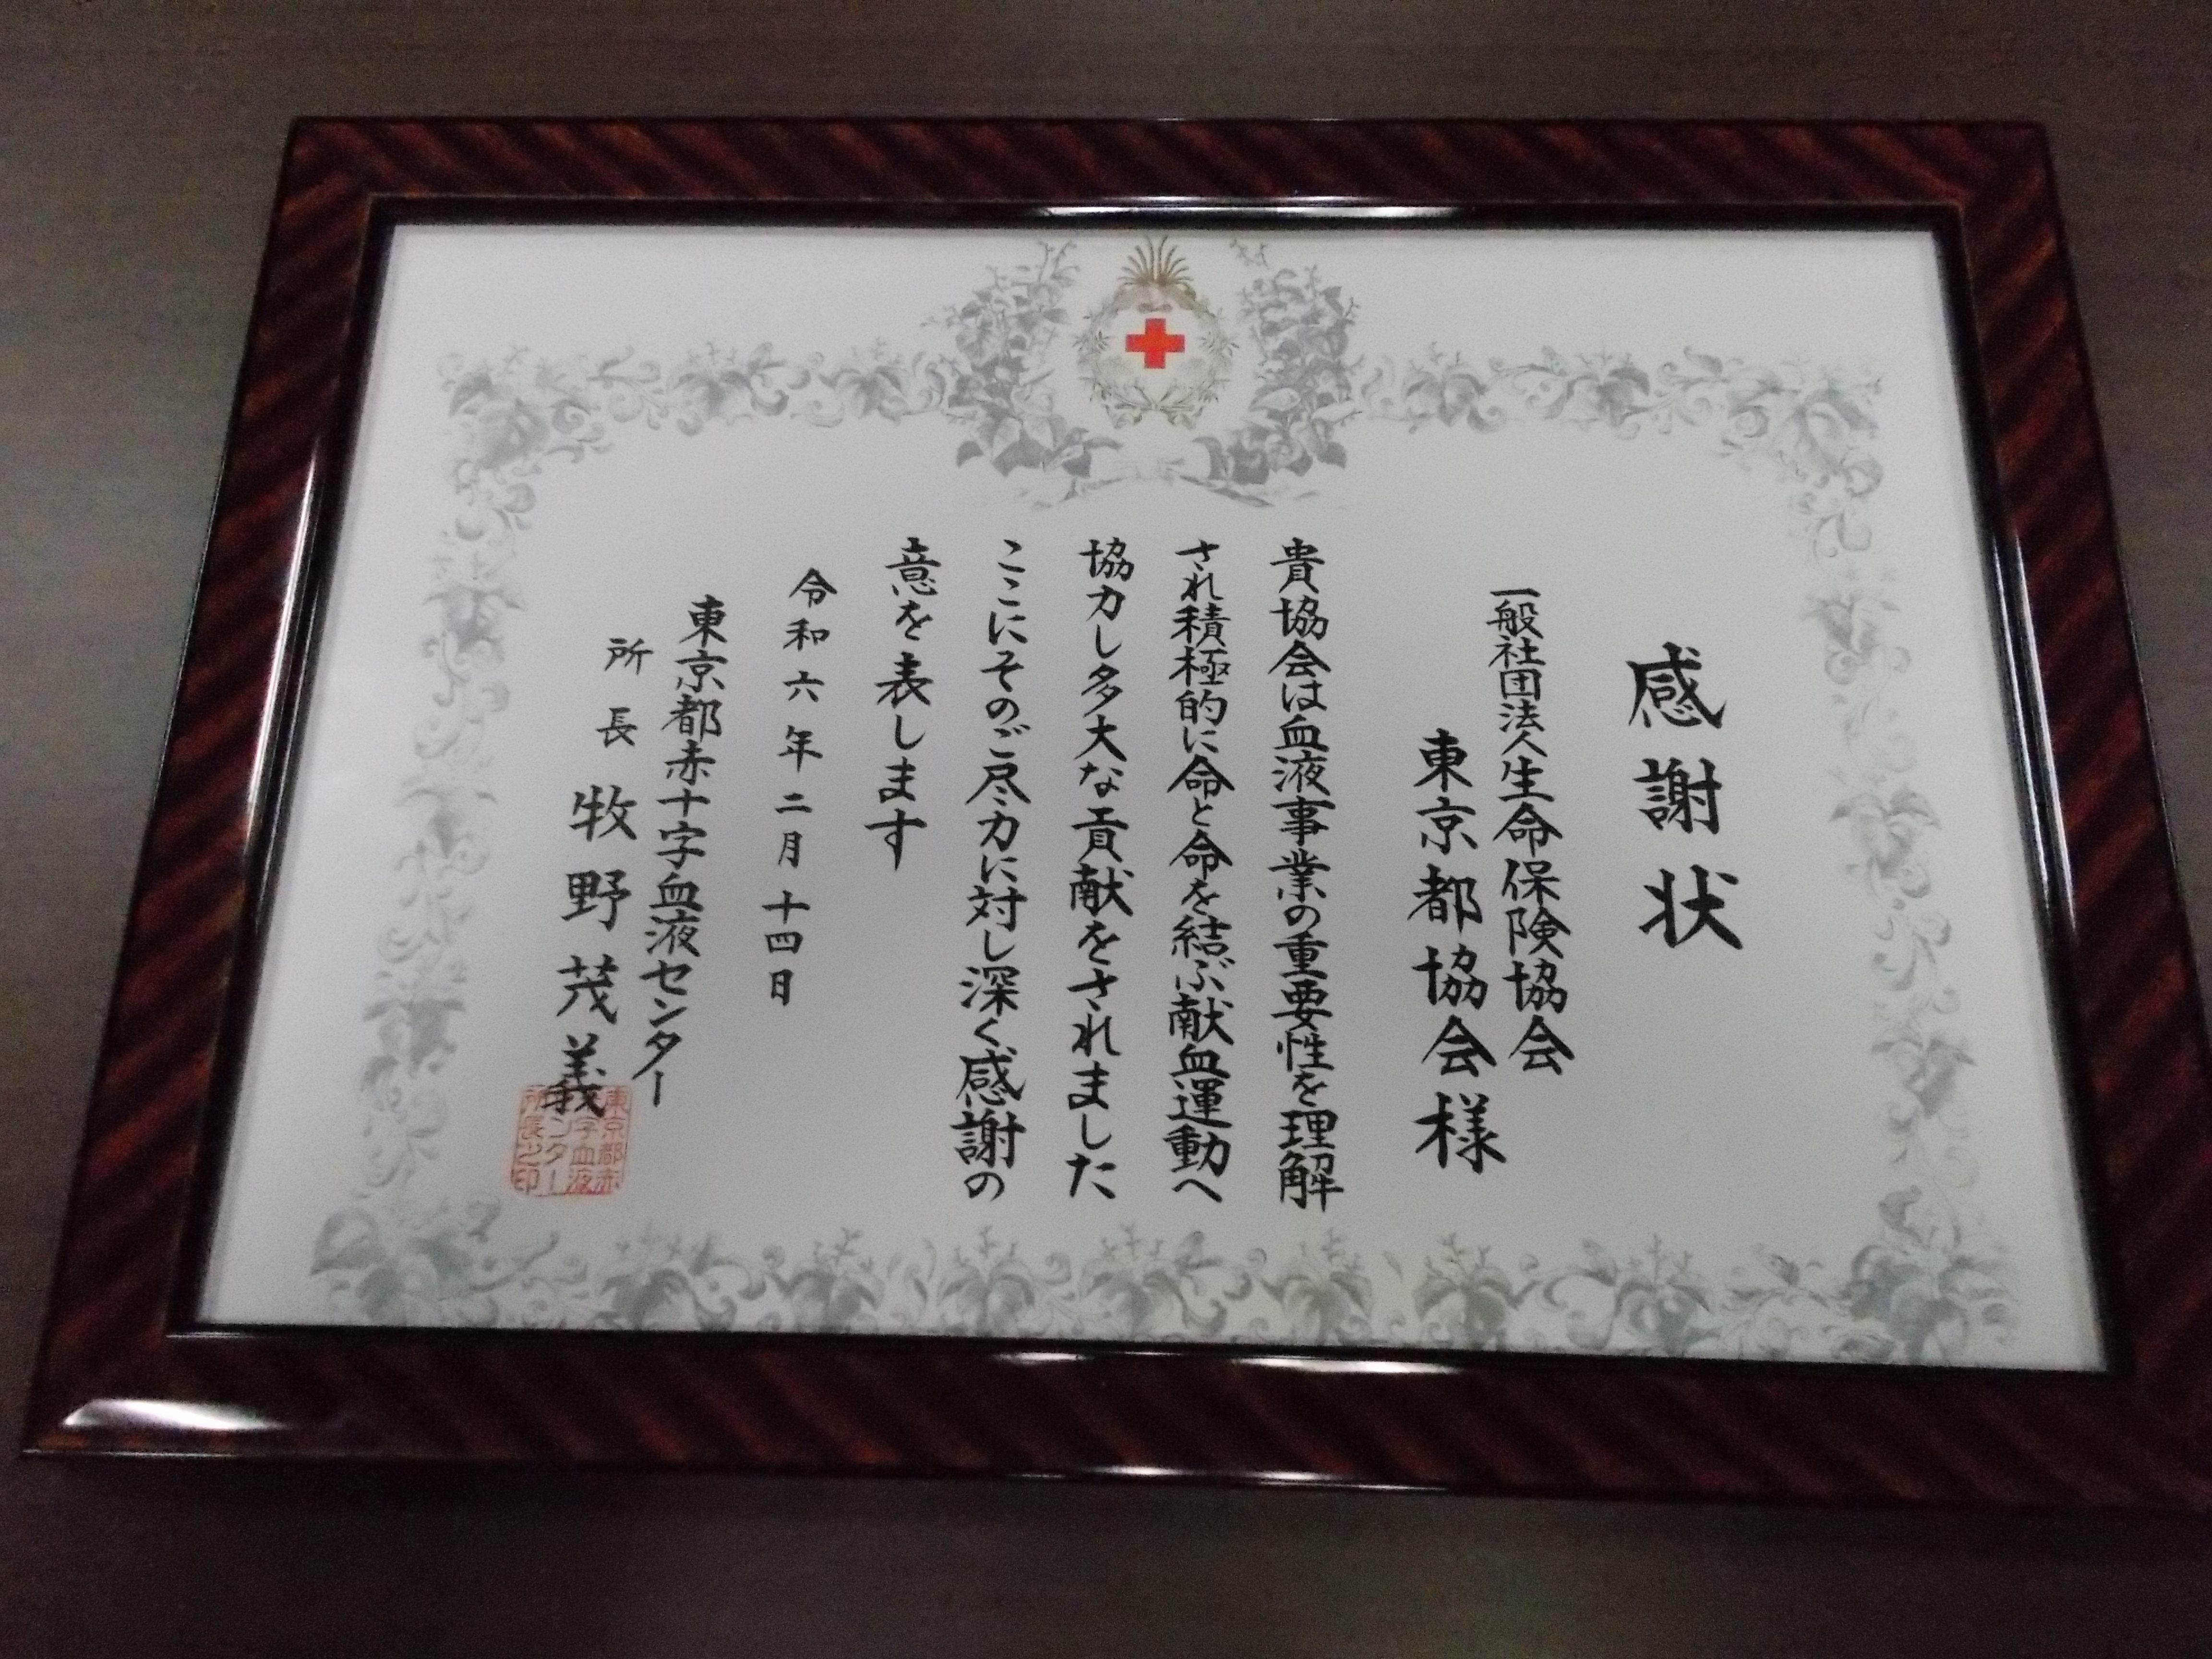 感謝状
一般社団法人生命保険協会
東京都協会様
貴協会は血液事業の重要性を理解
され積極的に命と命を結ぶ献血運動へ
協力し多大な貢献をされました
ここにそのご尽力に対し深く感謝の
意を表します
令和六年二月十四日
東京都赤十字血液センター
所長 牧野茂義
東京都赤
十字血液
センター
所長之印